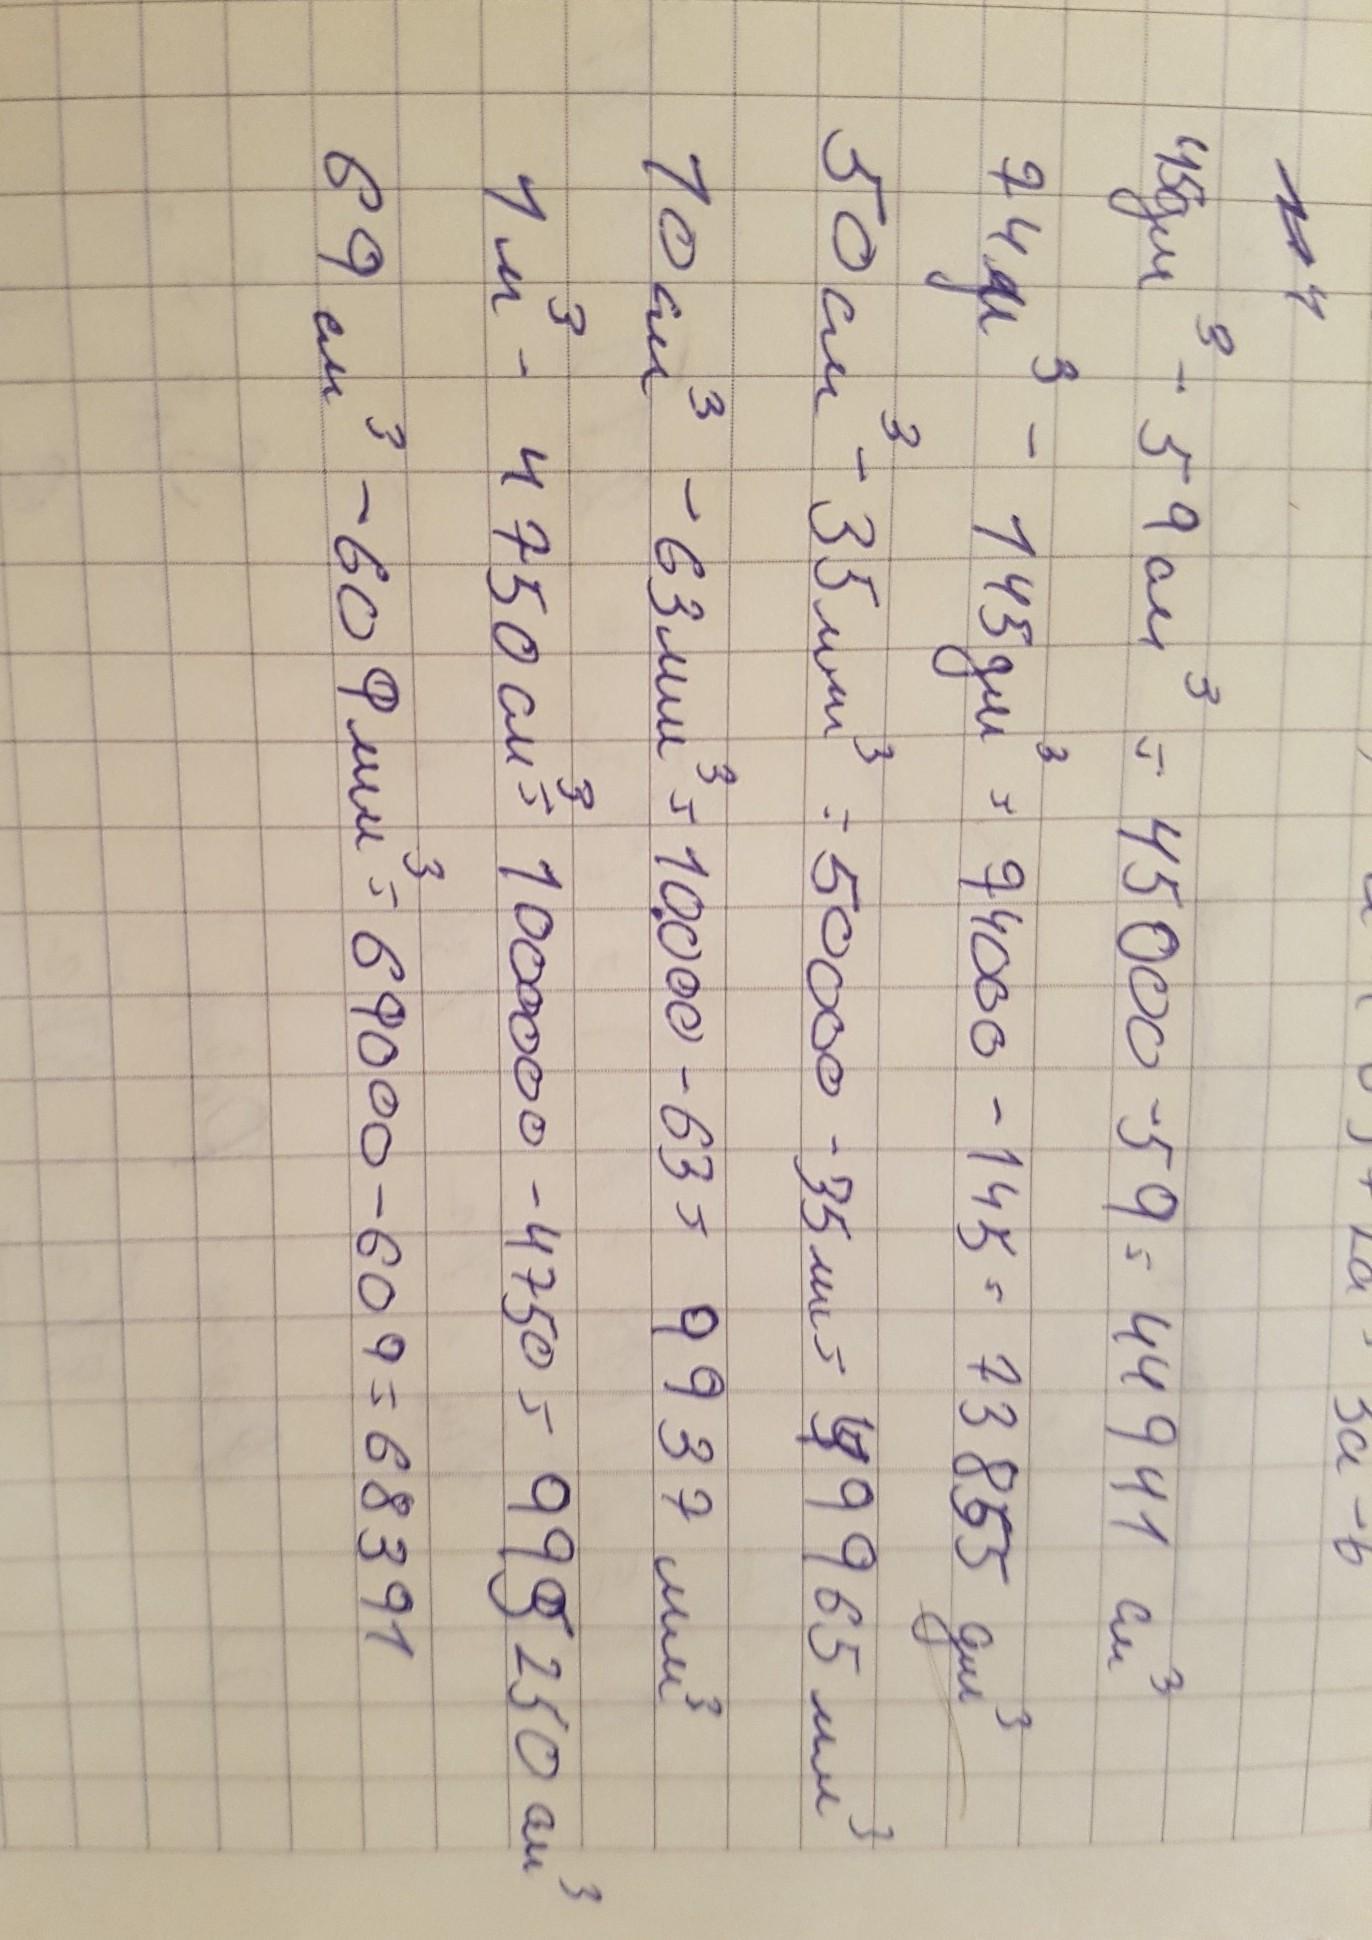 №4
45дм³ - 59см³ = 45000 - 59 = 44941 см³
74дм³ - 145дм³ = 74000 - 145 = 73855 дм³
50см³ - 35мм³ = 50000 - 35мм = 49965 мм³
10см³ - 63мм³ = 10000 - 63 = 9937 мм³
1м³ - 4750см³ = 1000000 - 4750 = 995250 см³
69см³ - 609мм³ = 69000 - 609 = 68391